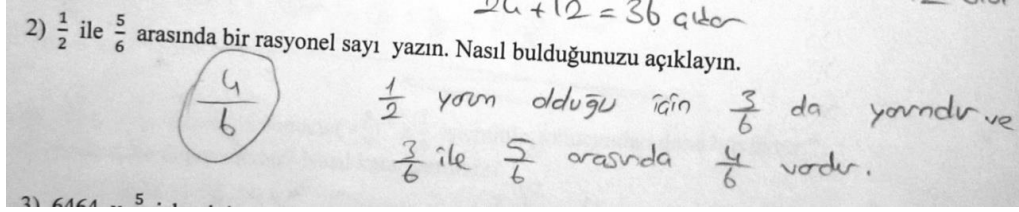 24 + 12 = 36 eder
2) 1/2 ile 5/6 arasında bir rasyonel sayı yazın. Nasıl bulduğunuzu açıklayın.
4/6
1/2 yarım olduğu için 3/6 da yarımdır ve
3/6 ile 5/6 arasında 4/6 vardır.
3) 6464 5